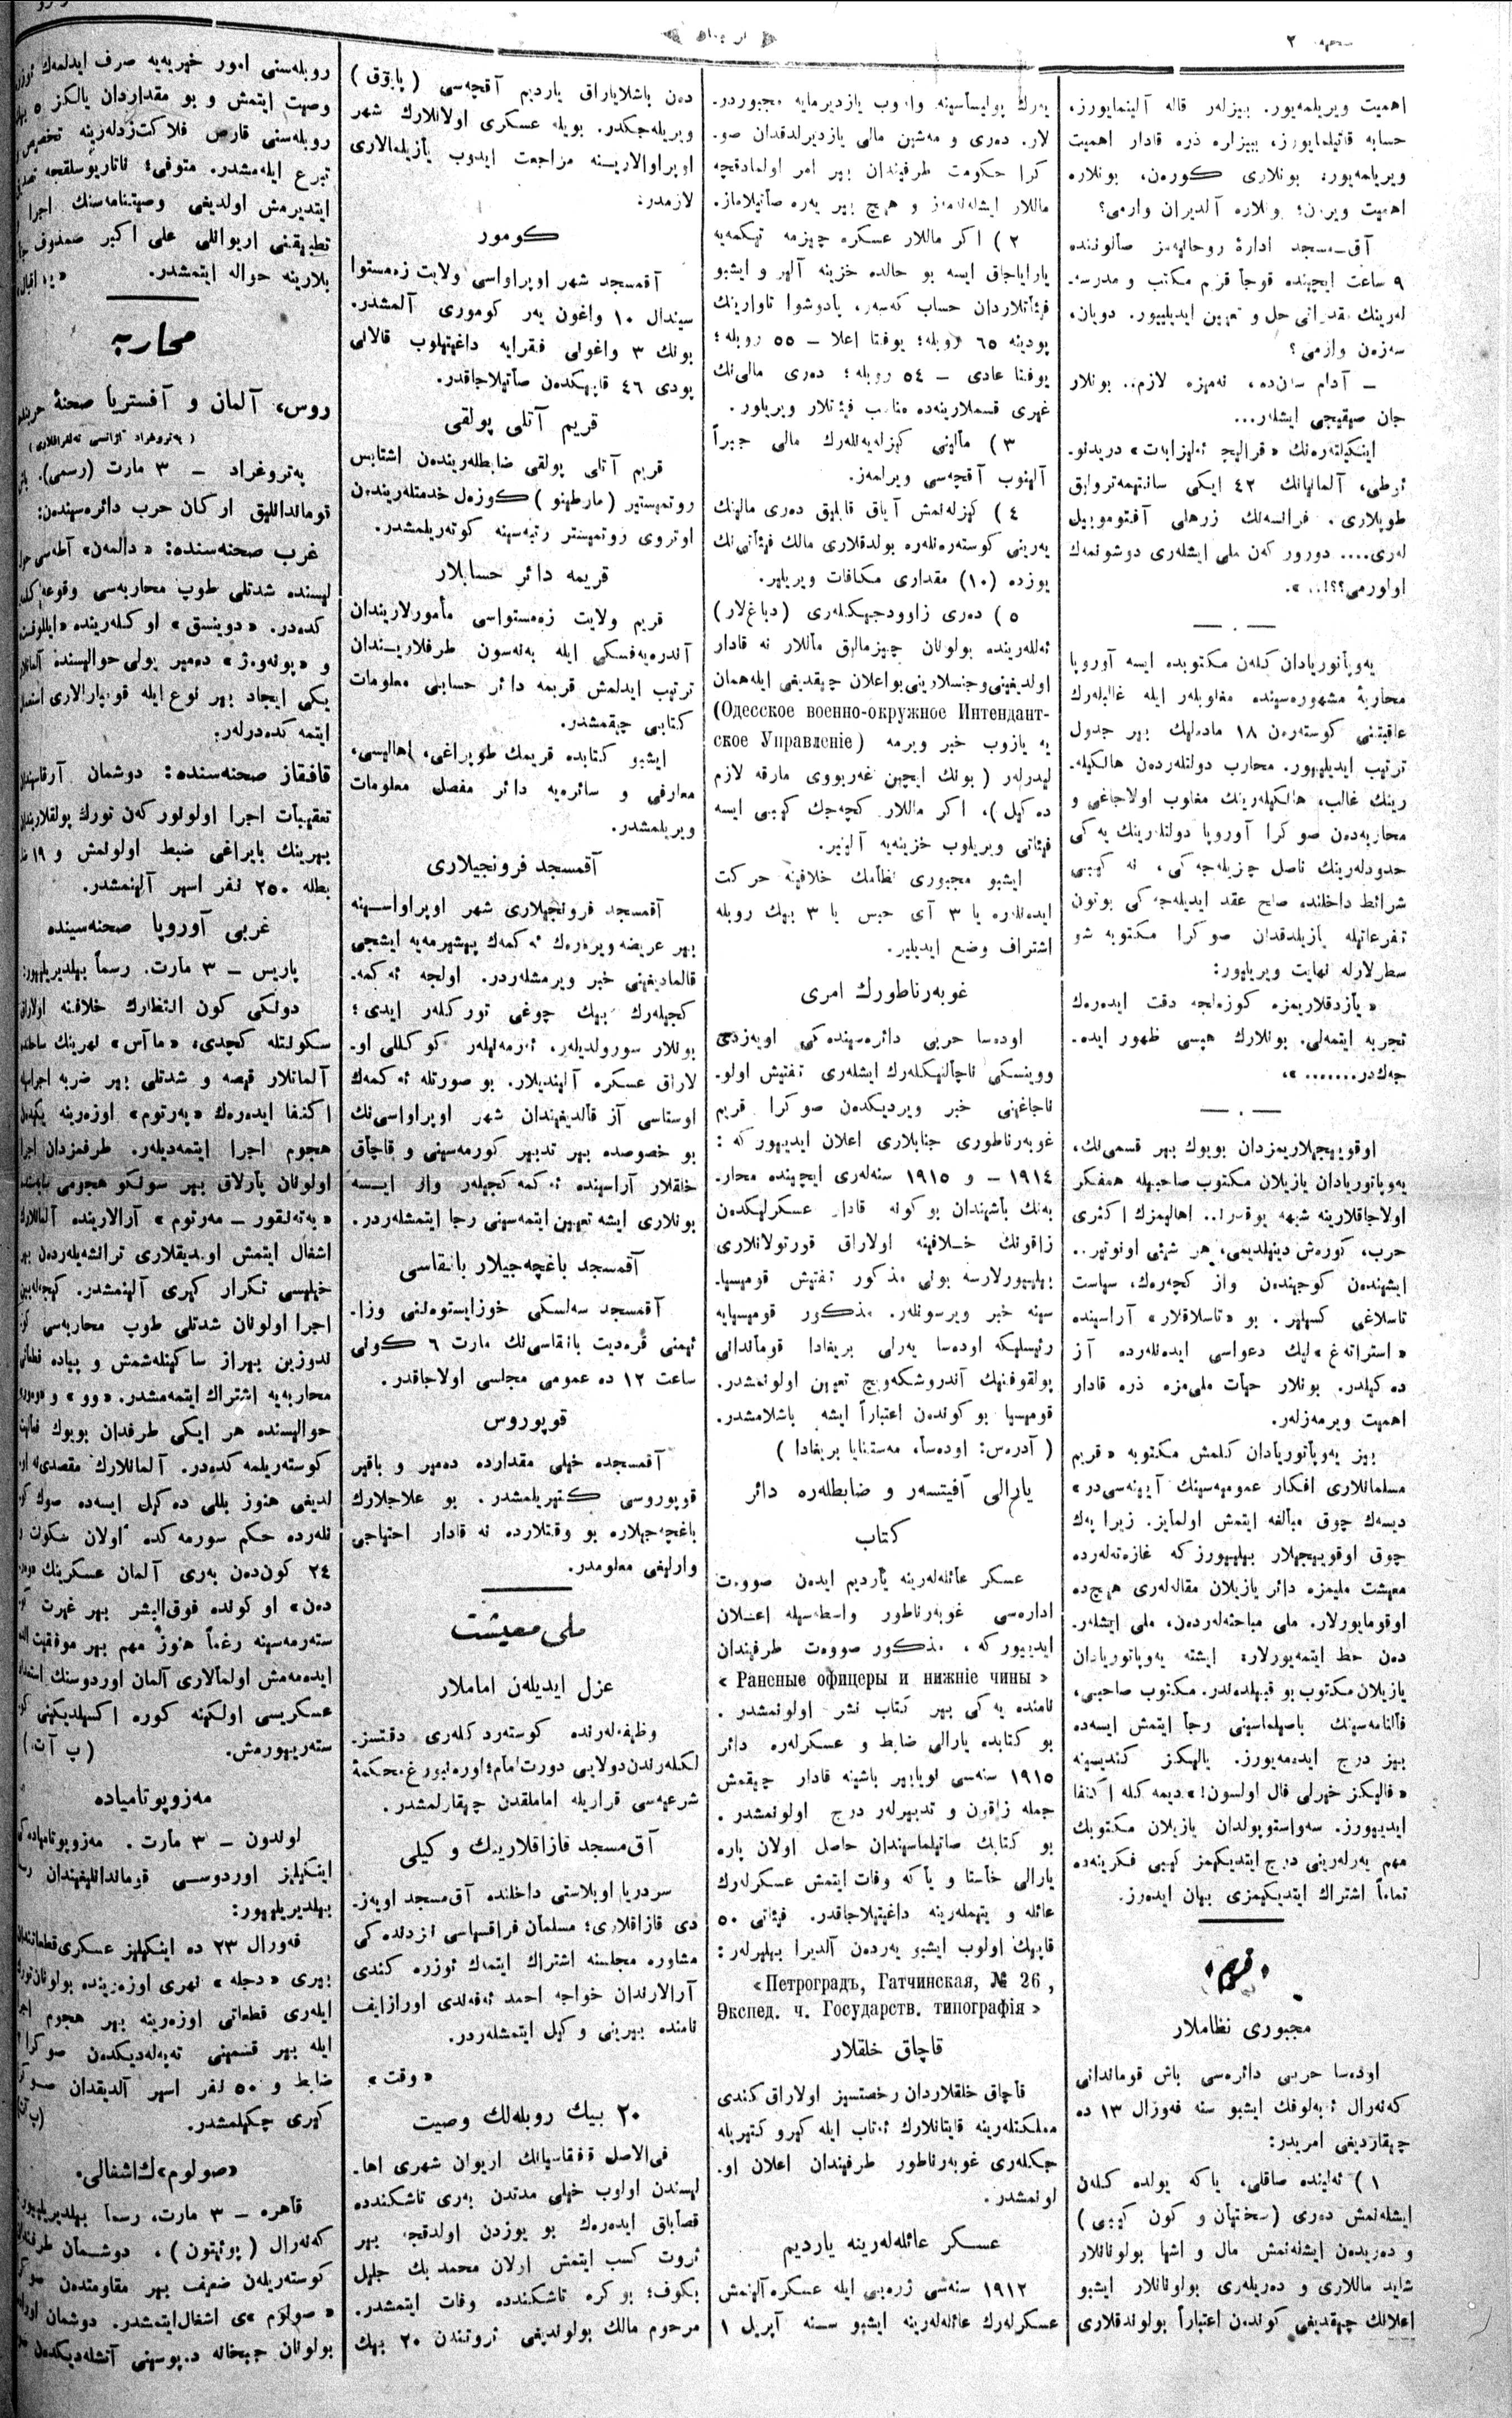 صحیفه ٢
ترجمان
اهمیت ویریلمه‌یور. بیزلەر قاله آلینمایورز،
حسابه قاتیلمایورز، بیزلره ذره قادار اهمیت
ویریلمه‌یور؛ بونلاری کورەن، بونلاره
اهمیت ویرن؛ ونلاره آلدیران وارمی؟
آق-مسجد ادارۀ روحانیه‌مز صالونندە
٩ ساعت ایچنده قوجا قریم مکتب و مدرسه-
سه‌زەن وارمی؟
جان صیقیجی ایشلەر...
اینکیلتەرەنك «قرالیچه ئەلیزابەت» دریدنو-
ئوطی، آلمانیانك ٤٢ ایکی سانتیمەترولق
طوپلاری. فرانسەنك زرهلی آفتوموبیل
لەری.... دورور کەن ملی ایشلەری دوشونمەك
اولورمی؟؟!.. ».
یەوپاتوریادان کلەن مکتوبده ایسه آوروپا
محاربۀ مشهورەسینده مغلوبلەر ایله غالبلەرك
عاقبتنی کوستەرەن ١٨ مادەلیك بیر جدول
ترتیب ایدیلییور. محارب دولتلەردەن هانکیلە-
رینك غالب، هانکیلەرینك مغلوب اولاجاغی و
محاربەدەن صوکرا آوروپا دولتلەرینك یەکی
حدودلەرینك ناصل چزیلەجەکی، نە کیبی
شرائط داخلنده صلح عقد ایدیلەجەکی بوتون
تفرعاتیله یازیلدقدان صوکرا مکتوبه شو
سطرلارله نهایت ویریلیور:
« یازدقلاریمزه کوزەلجه دقت ایدەرەك
تجربه ایتمەلی. بونلارك هپسی ظهور ایدە-
جەکدر....... ».
اوقویوجیلاریمزدان بویوك بیر قسمی‌نك،
یەوپاتوریادان یازیلان مکتوب صاحبیله همفکر
اولاجاقلارینه شبهه یوقدر!.. اهالیمزك اکثری
ایشیندەن کوجیندن واز کچەرەك، سیاست
« استراتەغ »لیك دعواسی ایدەنلەردە آز
ده‌کلدر. بونلار حیات ملی‌مزه ذره قادار
اهمیت ویرمەزلەر.
بیز یەوپاتوریادان کلمش مکتوبه « قریم
مسلمانلاری افکار عمومیه‌سینك آیینەسی‌در»
دیسەك چوق مبالغه ایتمش اولمایز. زیرا پەك
چوق اوقویوجیلار بیلییورزکه غازەتەلەردە
معیشت ملیمزه دائر یازیلان مقاله‌لەری هیچ‌ده
اوقومایورلار. ملی مباحثه‌لەردن، ملی ایشلەر-
دەن حظ ایتمەیورلار؛ ایشته یەوپاتوریادان
یازیلان مکتوب بو قبیلدەندر. مکتوب صاحبی،
فالنامه‌سینك باصیلماسینی رجا ایتمش ایسەدە
بیز درج ایدەمەیورز. یالیکز کندیسینه
« فالیکز خیرلی فال اولسون!» دیمه کله اکتفا
ایدییورز. سەواستوپولدان یازیلان مکتوبك
مهم یەرلەرینی درج ایتدیکیمز کیبی فکرینەده
تماماً اشتراك ایتدیکیمزی بیان ایدەرز.
« قریم »
مجبوری نظاملار
اودەسا حربی دائرەسی باش قوماندانی
کەنەرال ئەبەلوفك ایشبو سنه فەورال ١٣ ده
چیقاردیغی امریدر:
١) ئەلینده صاقلی، یاکه یولده کلەن
ایشلەنمش دەری (سختیان و کون کیبی)
و دەریدەن ایشلەنمش مال و اشیا بولونانلار
شاید ماللاری و دەریلەری بولونانلار ایشبو
اعلانك چیقدیغی کوندەن اعتباراً بولوندقلاری
یەرك پولیساسینه واروب یازدیرمایه مجبوردر-
لار. دەری و مەشین مالی یازدیرلدقدان صو-
کرا حکومت طرفیندان بیر امر اولمادقچه
ماللار ایشلەنەمەز و هیچ بیر یەره صاتیلاماز.
٢) اکر ماللار عسکره چیزمه تیکمەیه
یارایاجاق ایسه بو حالده خزینه آلیر و ایشبو
فیئاتلاردان حساب کەسەر، پادوشوا تاوارینك
پودینه ٦٥ روبله؛ یوفتا اعلا — ٥٥ روبله؛
یوفتا عادی — ٥٤ روبله؛ دەری مالی‌نك
غیری قسملارینه‌ده مناسب فیئتلار ویریلور.
٣) مالینی کیزلەیەنلەرك مالی جبراً
آلینوب آقچه‌سی ویرلمەز.
٤) کیزلەنمش آیاق قابلیق دەری مالینك
یەرینی کوستەرەنلەره بولدقلاری مالك فیئاتی‌نك
یوزده (١٠) مقداری مکافات ویریلیر.
٥) دەری زاوودجیکلەری (دباغ‌لار)
ئەللەرینده بولونان چیزمالیق ماللار نه قادار
اولدیغینی و جنسلارینی بو اعلان چیقدیغی ایله همان
(Одесское военно-окружное Интендант-
ское Управленіе) یه یازوب خبر ویرمه
لیدرلەر (بونك ایچین غەربووی مارقه لازم
دەکیل)، اکر ماللار کچەجك کیبی ایسه
فیئاتی ویریلوب خزینەیه آلینیر.
ایشبو مجبوری نظامك خلافینه حرکت
ایدەنلەره یا ٣ آی حبس یا ٣ بیك روبله
اشتراف وضع ایدیلیر.
غوبەرناطورك امری
اودەسا حربی دائرەسینده‌کی اویەزدنی
ووینسکی ناچالنیکلەرك ایشلەری تفتیش اولو-
ناجاغینی خبر ویردیکدەن صوکرا قریم
غوبەرناطوری جنابلاری اعلان ایدییور که:
١٩١٤ — و ١٩١٥ سنەلەری ایچینده محار-
بەنك باشیندان بو کونه قادار عسکرلیکدەن
زاقونك خلافینه اولاراق قورتولانلاری
بیلییورلارسه بونی مذکور تفتیش قومیسیا-
سینه خبر ویرسونلەر. مذکور قومیسیایه
رئیسلیکه اودەسا یەرلی بریغادا قوماندانی
پولقوفنیك آندروشکەویچ تعیین اولونمشدر.
قومیسیا بو کوندەن اعتباراً ایشه باشلامشدر.
( آدرەس: اودەسا، مەستنایا بریغادا )
یارالی آفیتسەر و ضابطلەره دائر
کتاب
عسکر عائله‌لەرینه یاردیم ایدەن صووەت
اداره‌سی غوبەرناطور واسطه‌سیله اعلان
ایدییور که، مذکور صووەت طرفیندان
« Раненые офицеры и нижніе чины »
نامنده یەکی بیر کتاب نشر اولونمشدر.
بو کتابده یارالی ضابط و عسکرلەره دائر
١٩١٥ سنه‌سی نویابیر باشینه قادار چیقمش
جمله زاقون و تدبیرلەر درج اولونمشدر.
بو کتابك صاتیلماسیندان حاصل اولان پاره
یارالی خاستا و یاکه وفات ایتمش عسکرلەرك
عائله و یتیملەرینه داغیتیلاجاقدر. فیئاتی ٥٠
قاپیك اولوب ایشبو یەردەن آلدیرا بیلیرلەر:
«Петроградъ, Гатчинская, № 26,
Экспед. ч. Государств. типографія»
قاچاق خلقلار
قاچاق خلقلاردان رخصتسیز اولاراق کندی
مملکتلەرینه قایتانلارك ئەتاب ایله کیرو کتیریله
جکلەری غوبەرناطور طرفیندان اعلان او-
لونمشدر.
عسکر عائله‌لەرینه یاردیم
١٩١٢ سنه‌سی ژرەبی ایله عسکره آلینمش
عسکرلەرك عائله‌لەرینه ایشبو سنه آپریل ١
دەن باشلایاراق یاردیم آقچه‌سی (پایوق)
ویریله‌جکدر. بویله عسکری اولانلارك شهر
اوپراوالارینه مراجعت ایدوب یازیلمالاری
لازمدر.
کومور
آقمسجد شهر اوپراواسی ولایت زەمستوا
سیندال ١٠ واغون یەر کوموری آلمشدر.
بونك ٣ واغونی فقرایه داغیتیلوب قالانی
پودی ٤٦ قاپیکدەن صاتیلاجاقدر.
قریم آتلی پولقی
قریم آتلی پولقی ضابطلەریندەن اشتابس
روتمیستیر (مارطینو) کوزەل خدمتلەریندەن
اوتروی روتمیستر رتبه‌سینه کوتەریلمشدر.
قریمه دائر حسابلار
قریم ولایت زەمستواسی مأمورلاریندان
آندرەیەفسکی ایله بەنەسون طرفلاریندان
ترتیب ایدلمش قریمه دائر حسابلی معلومات
کتابی چیقمشدر.
ایشبو کتابده قریمك طوپراغی، اهالیسی،
معارفی و سائرەیه دائر مفصل معلومات
ویریلمشدر.
آقمسجد فرونجیلاری
آقمسجد فرونجیلاری شهر اوپراواسینه
بیر عریضه ویرەرەك ئەکمەك پیشیرمەیه ایشچی
قالمادیغینی خبر ویرمشلەردر. اولجه ئەکمە-
کجیلەرك بیك چوغی تورکلەر ایدی؛
بونلار سورولدیلەر، ئەرمەنیلەر کوکللی او-
لاراق عسکره آلیندیلار. بو صورتله ئەکمەك
اوستاسی آز قالدیغیندان شهر اوپراواسی‌نك
بو خصوصده بیر تدبیر کورمه‌سینی و قاچاق
خلقلار آراسینده ئەکمەکجیلەر وار ایسه
بونلاری ایشه تعیین ایتمه‌سینی رجا ایتمشلەردر.
آقمسجد باغچه‌جیلار بانقاسی
آقمسجد سەلسکی خوزایستوەننی وزا-
ئیمنی قرەدیت بانقاسی‌نك مارت ٦ کونی
ساعت ١٢ ده عمومی مجلسی اولاجاقدر.
قوپوروس
آقمسجده خیلی مقدارده دەمیر و باقیر
قوپوروسی کتیریلمشدر. بو علاجلارك
باغچه‌جیلاره بو وقتلارده نه قادار احتیاجی
وارلیغی معلومدر.
ملی معیشت
عزل ایدیلەن اماملار
شرعیه‌سی قراریله اماملقدن چیقارلمشدر.
آق‌مسجد قازاقلارینك وکیلی
سردریا اوبلاستی داخلنده آق‌مسجد اویەز-
دی قازاقلاری؛ مسلمان فراقسیاسی نزدنده‌کی
مشاوره مجلسنه اشتراك ایتمك ئوزره کندی
آرالارندان خواجه احمد ئەفەندی اورازایف
نامنده بیرینی وکیل ایتمشلەردر.
« وقت »
٢٠ بیك روبله‌لك وصیت
فی‌الاصل قفقاسیانك اریوان شهری اها-
لیسندن اولوب خیلی مدتدن بەری تاشکندده
قصابلق ایدەرەك بو یوزدن اولدقچه بیر
ثروت کسب ایتمش اولان محمد بك جلیل
بکوف؛ بو کره تاشکندده وفات ایتمشدر.
مرحوم مالك بولوندیغی ثروتندن ٢٠ بیك
روبله‌سنی امور خیریه‌یه صرف ایدلمەك
وصیت ایتمش و بو مقداردان یالکز ٥
روبله‌سنی قارص فلاکت‌زدەلەرینه تخصیص
تبرع ایله‌مشدر. متوفی؛
ایتدیرمش اولدیغی وصیتنامه‌سنك اجرا
تطبیقنی اریوانلی علی اکبر
بلارینه حواله ایتمشدر.
محاربه
روس، آلمان و آفستریا صحنۀ
(پەتروغراد آژانسی تەلغرافلاری)
پەتروغراد — ٣ مارت (رسمی).
قوماندانلیق ارکان حرب دائرەسیندەن:
غرب صحنه‌سنده: «دالمەن» آطه‌سی
لیسنده شدتلی طوپ محاربه‌سی وقوعه
کده‌در. «دوینسق» اوکلەرینده
یکی ایجاد بیر نوع ایله
ایتمه کدەدرلەر.
قافقاز صحنه‌سنده: دوشمان
تعقیبات اجرا اولونور کەن تورك
بیرینك بایراغی ضبط اولونمش و ١٩
بطله ٢٥٠ نفر اسیر آلینمشدر.
غربی آوروپا صحنه‌سینده
پاریس — ٣ مارت. رسماً بیلدیریلیور:
دونکی کون انتظارك خلافنه اولاراق
سکونتله کچدی. «ماآس» نهرینك
آلمانلار قیصه و شدتلی بیر ضربه
اکتفا ایدەرەك «بەرتوم» اوزەرینه
هجوم اجرا ایتمەدیلەر. طرفمزدان اجرا
اولونان پارلاق بیر سونکو هجومی
اشغال ایتمش اولدیقلاری ترانشەیلەردەن
خیلیسی تکرار کیری آلینمشدر.
اجرا اولونان شدتلی طوپ محاربه‌سی
محاربه‌یه اشتراك ایتمەمشدر.
حوالیسنده هر ایکی طرفدان بویوك
کوستەریلمه کده‌در. آلمانلارك
لدیغی هنوز بللی دەکیل ایسەده
نلەردە حکم سورمەکده اولان سکوت
٢٤ کوندەن بەری آلمان عسکرینك
سترمه‌سینه رغماً هنوز مهم بیر موفقیت
ایدەمەمش اولمالاری آلمان اوردوسنك
عسکریسی اولکینه کوره اکسیلدیکینی
ستەرییورمش. (پ آ)
مەزوپوتامیاده
لوندون — ٣ مارت.
اینکیلیز اوردوسی قوماندانلیغیندان
بیلدیریلیور:
فەورال ٢٣ ده اینکیلیز عسکری
بیری «دجله» نهری اوزەرینده بولونان
ایلەری قطعاتی اوزەرینه بیر هجوم
ایله بیر قسمینی تەپەلەدیکدەن صوکرا
ضابط و ٥٠ نفر اسیر آلدیقدان
کیری چکیلمشدر.
«صولوم»ك اشغالی
قاهره — ٣ مارت، رسماً بیلدیریلیور
کەنەرال (پونتون)، دوشمان
کوستەریلەن ضعیف بیر مقاومتدەن
«صولوم»ی اشغال ایتمشدر. دوشمان
بولونان جبخانه دپوسینی آتشلەدیکدەن